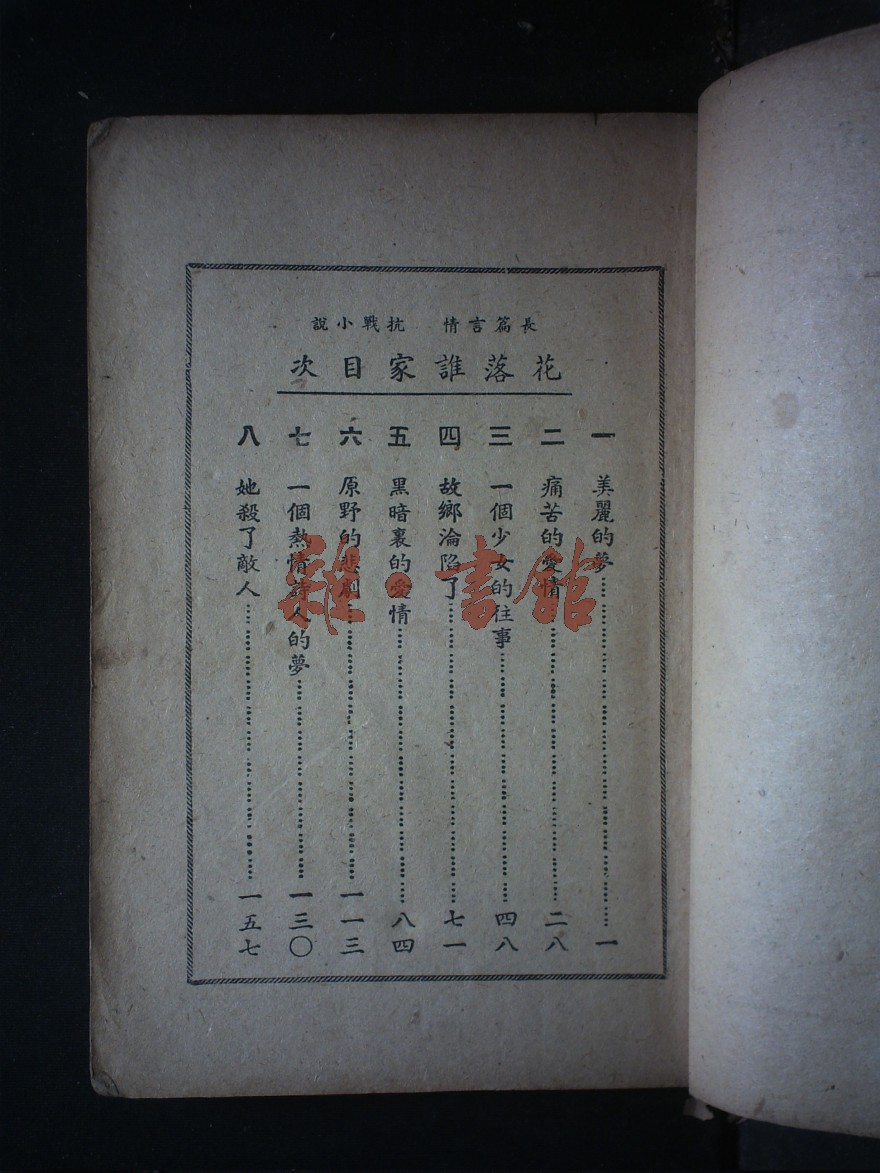 長篇言情 抗戰小說
花落誰家目次
一 美麗的夢……一
二 痛苦的愛情……二八
三 一個少女的往事……四八
四 故鄉淪陷了……七一
五 黑暗裏的愛情……八四
六 原野的悲劇……一一三
七 一個熱情詩人的夢……一三〇
八 她殺了敵人……一五七
雜·書館